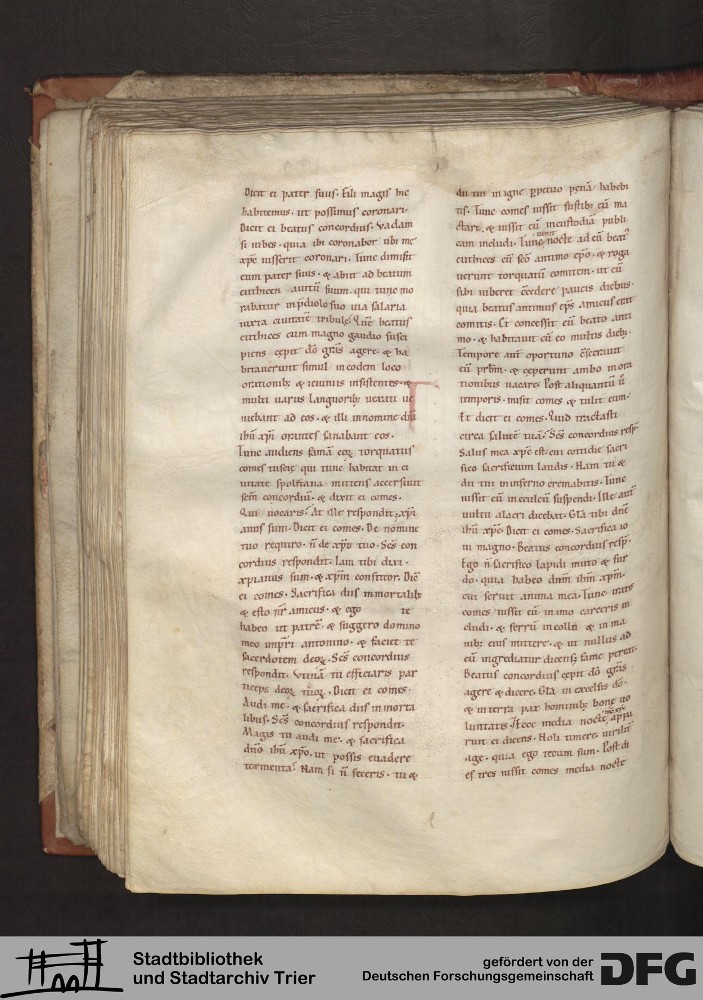 Dicit ei pater suus. Fili magis hic
habitemus. ut possimus coronari.
Dicit ei beatus concordius. Vadam
si iubes. quia ibi coronabor ubi me
xp̄c iusserit coronari. Tunc dimisit
eum pater suus. & abiit ad beatum
euthicen auitū suum. qui tunc mo
rabatur inp̄diolo suo uia salaria
iuxta ciuitatē tribule. Quē beatus
euthices cum magno gaudio susci
piens cępit dō grās agere. & ha
bitauerunt simul in eodem loco
orationib; & ieiuniis insistentes. &
multi uariis languorib; uexati ue
niebant ad eos. & illi innomine dn̄i
ihū xp̄i orantes sanabant eos.
Tunc audiens famā eoꝝ torquatus
comes tuscię qui tunc habitat in ci
uitate spoletana mittens accersiuit
scm̄ concordiū. & dixit ei comes.
Qui uocaris? At ille respondit; xp̄i
anus sum. Dicit ei comes. De nomine
tuo requiro. n̄ de xp̄o tuo. Scs̄ con
cordius respondit. Iam tibi dixi.
xp̄ianus sum. & xp̄m confiteor. Dic̄
ei comes. Sacrifica diis inmortalib;
& esto nr̄ amicus. & ego te
habeo ut patrē. & suggero domino
meo impr̄i antonino. & faciet te
sacerdotem deoꝝ. Scs̄ concordius
respondit. Vtinā tu efficiaris par
ticeps deoꝝ tuoꝝ. Dicit ei comes.
Audi me. & sacrifica diis inmorta
libus. Scs̄ concordius respondit.
Magis tu audi me. & sacrifica
dn̄o ihū xp̄o. ut possis euadere
tormenta. Nam si n̄ feceris. tu &
dii tui in igne ꝑpetuo penā habebi
tis. Tunc comes iussit fustib; eū ma
ctari. & iussit eū incustodiā publi
cam includi. Tunc uenit nocte ad eū beatꝰ
euthices cū scō antimo ep̄o. & roga
uerunt torquatū comitem. ut eū
sibi iuberet c̄cedere paucis diebus.
quia beatus antimus ep̄s amicus erat
comitis. Et concessit eū beato anti
mo. & habitauit cū eo multis dieb;.
Tempore aut̄ oportuno c̄secrauit
eū prb̄m. & cęperunt ambo in ora
tionibus uacare. Post aliquantū ū
temporis. misit comes & tulit eum.
Et dicit ei comes. Quid tractasti
circa salutē tuā? Scs̄ concordius resp̄.
Salus mea xp̄c est. cui cottidie sacri
fico sacrificium laudis. Nam tu &
dii tui in inferno cremabitis. Tunc
iussit eū in eculeū suspendi. Ille aut̄
uultu alacri dicebat. Gl̄a tibi dn̄e
ihū xp̄e. Dicit ei comes. Sacrifica io
ui magno. Beatus concordius resp̄.
Ego n̄ sacrifico lapidi muto & sur
do. quia habeo dn̄m ihm̄ xp̄m.
cui seruit anima mea. Tunc iratus
comes iussit eū in imo carceris in
cludi. & ferrū in collū & in ma
nib; eius mittere. & ut nullus ad
eū ingrediatur dicens; fame pereat.
Beatus concordius cępit dō grās
agere & dicere. Gl̄a in excelsis dō.
& in terra pax hominib; bonę uo
luntatis. Ecce media nocte angls̄ appa
ruit ei dicens. Noli timere uiriliter
age. quia ego tecum sum. Post di
es tres iussit comes media nocte
Stadtbibliothek
und Stadtarchiv Trier
gefördert von der
Deutschen Forschungsgemeinschaft
DFG